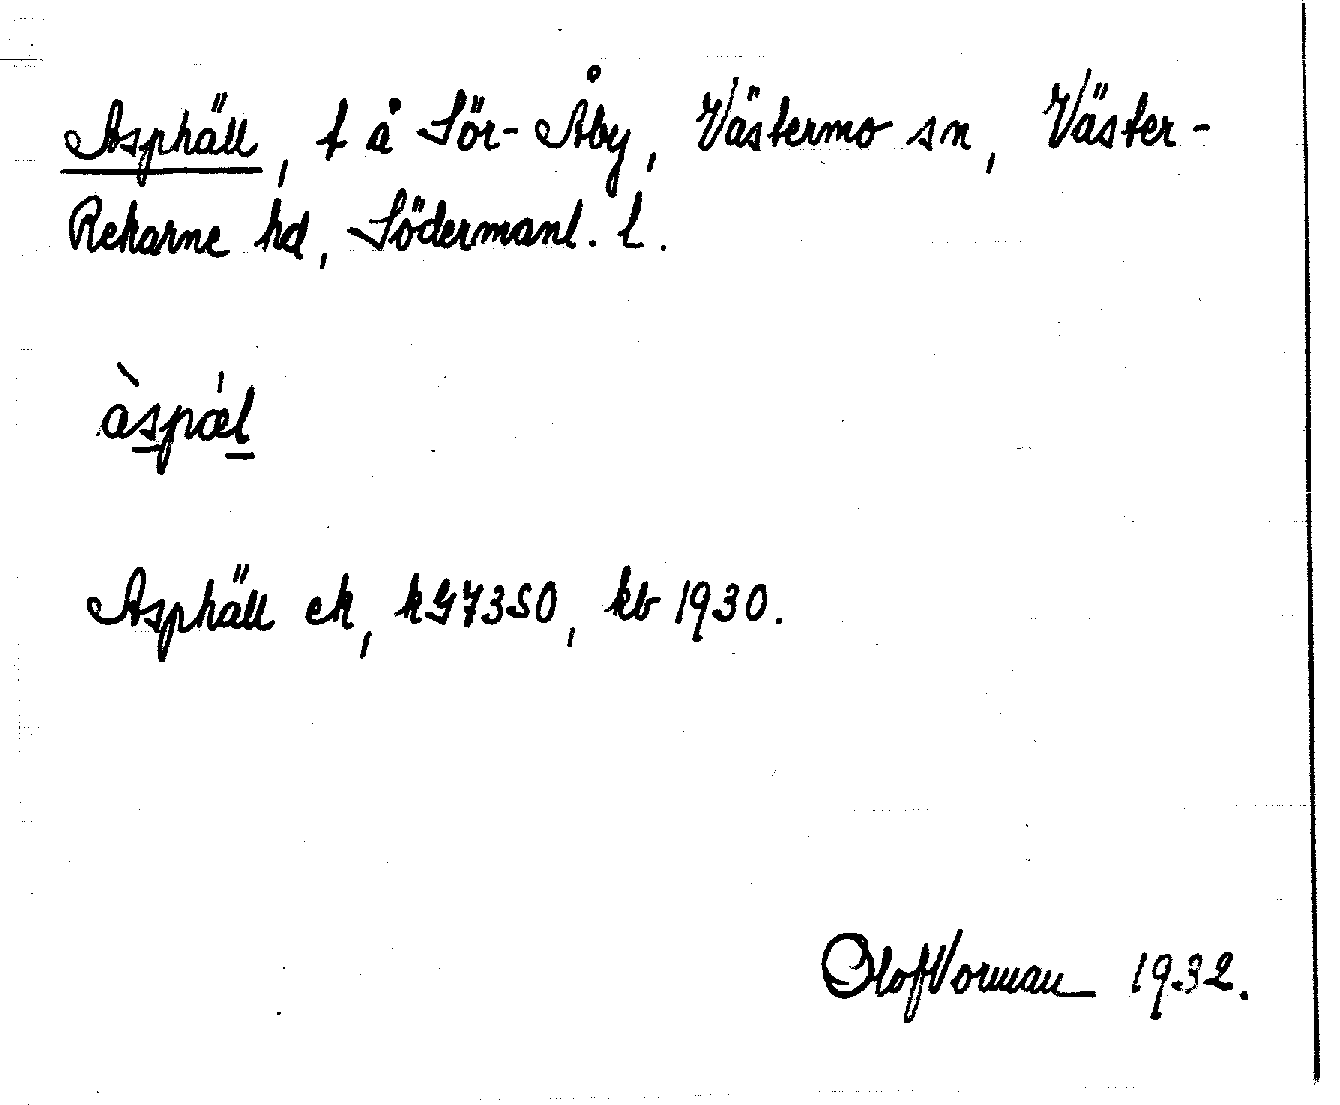 Asphäll, t å Sör-Åby, Västermo sn, Väster-
Rekarne hd, Södermanl. l.
àspæl
Asphäll ek, kG7350, kb 1930.
Olof Vorman 1932.